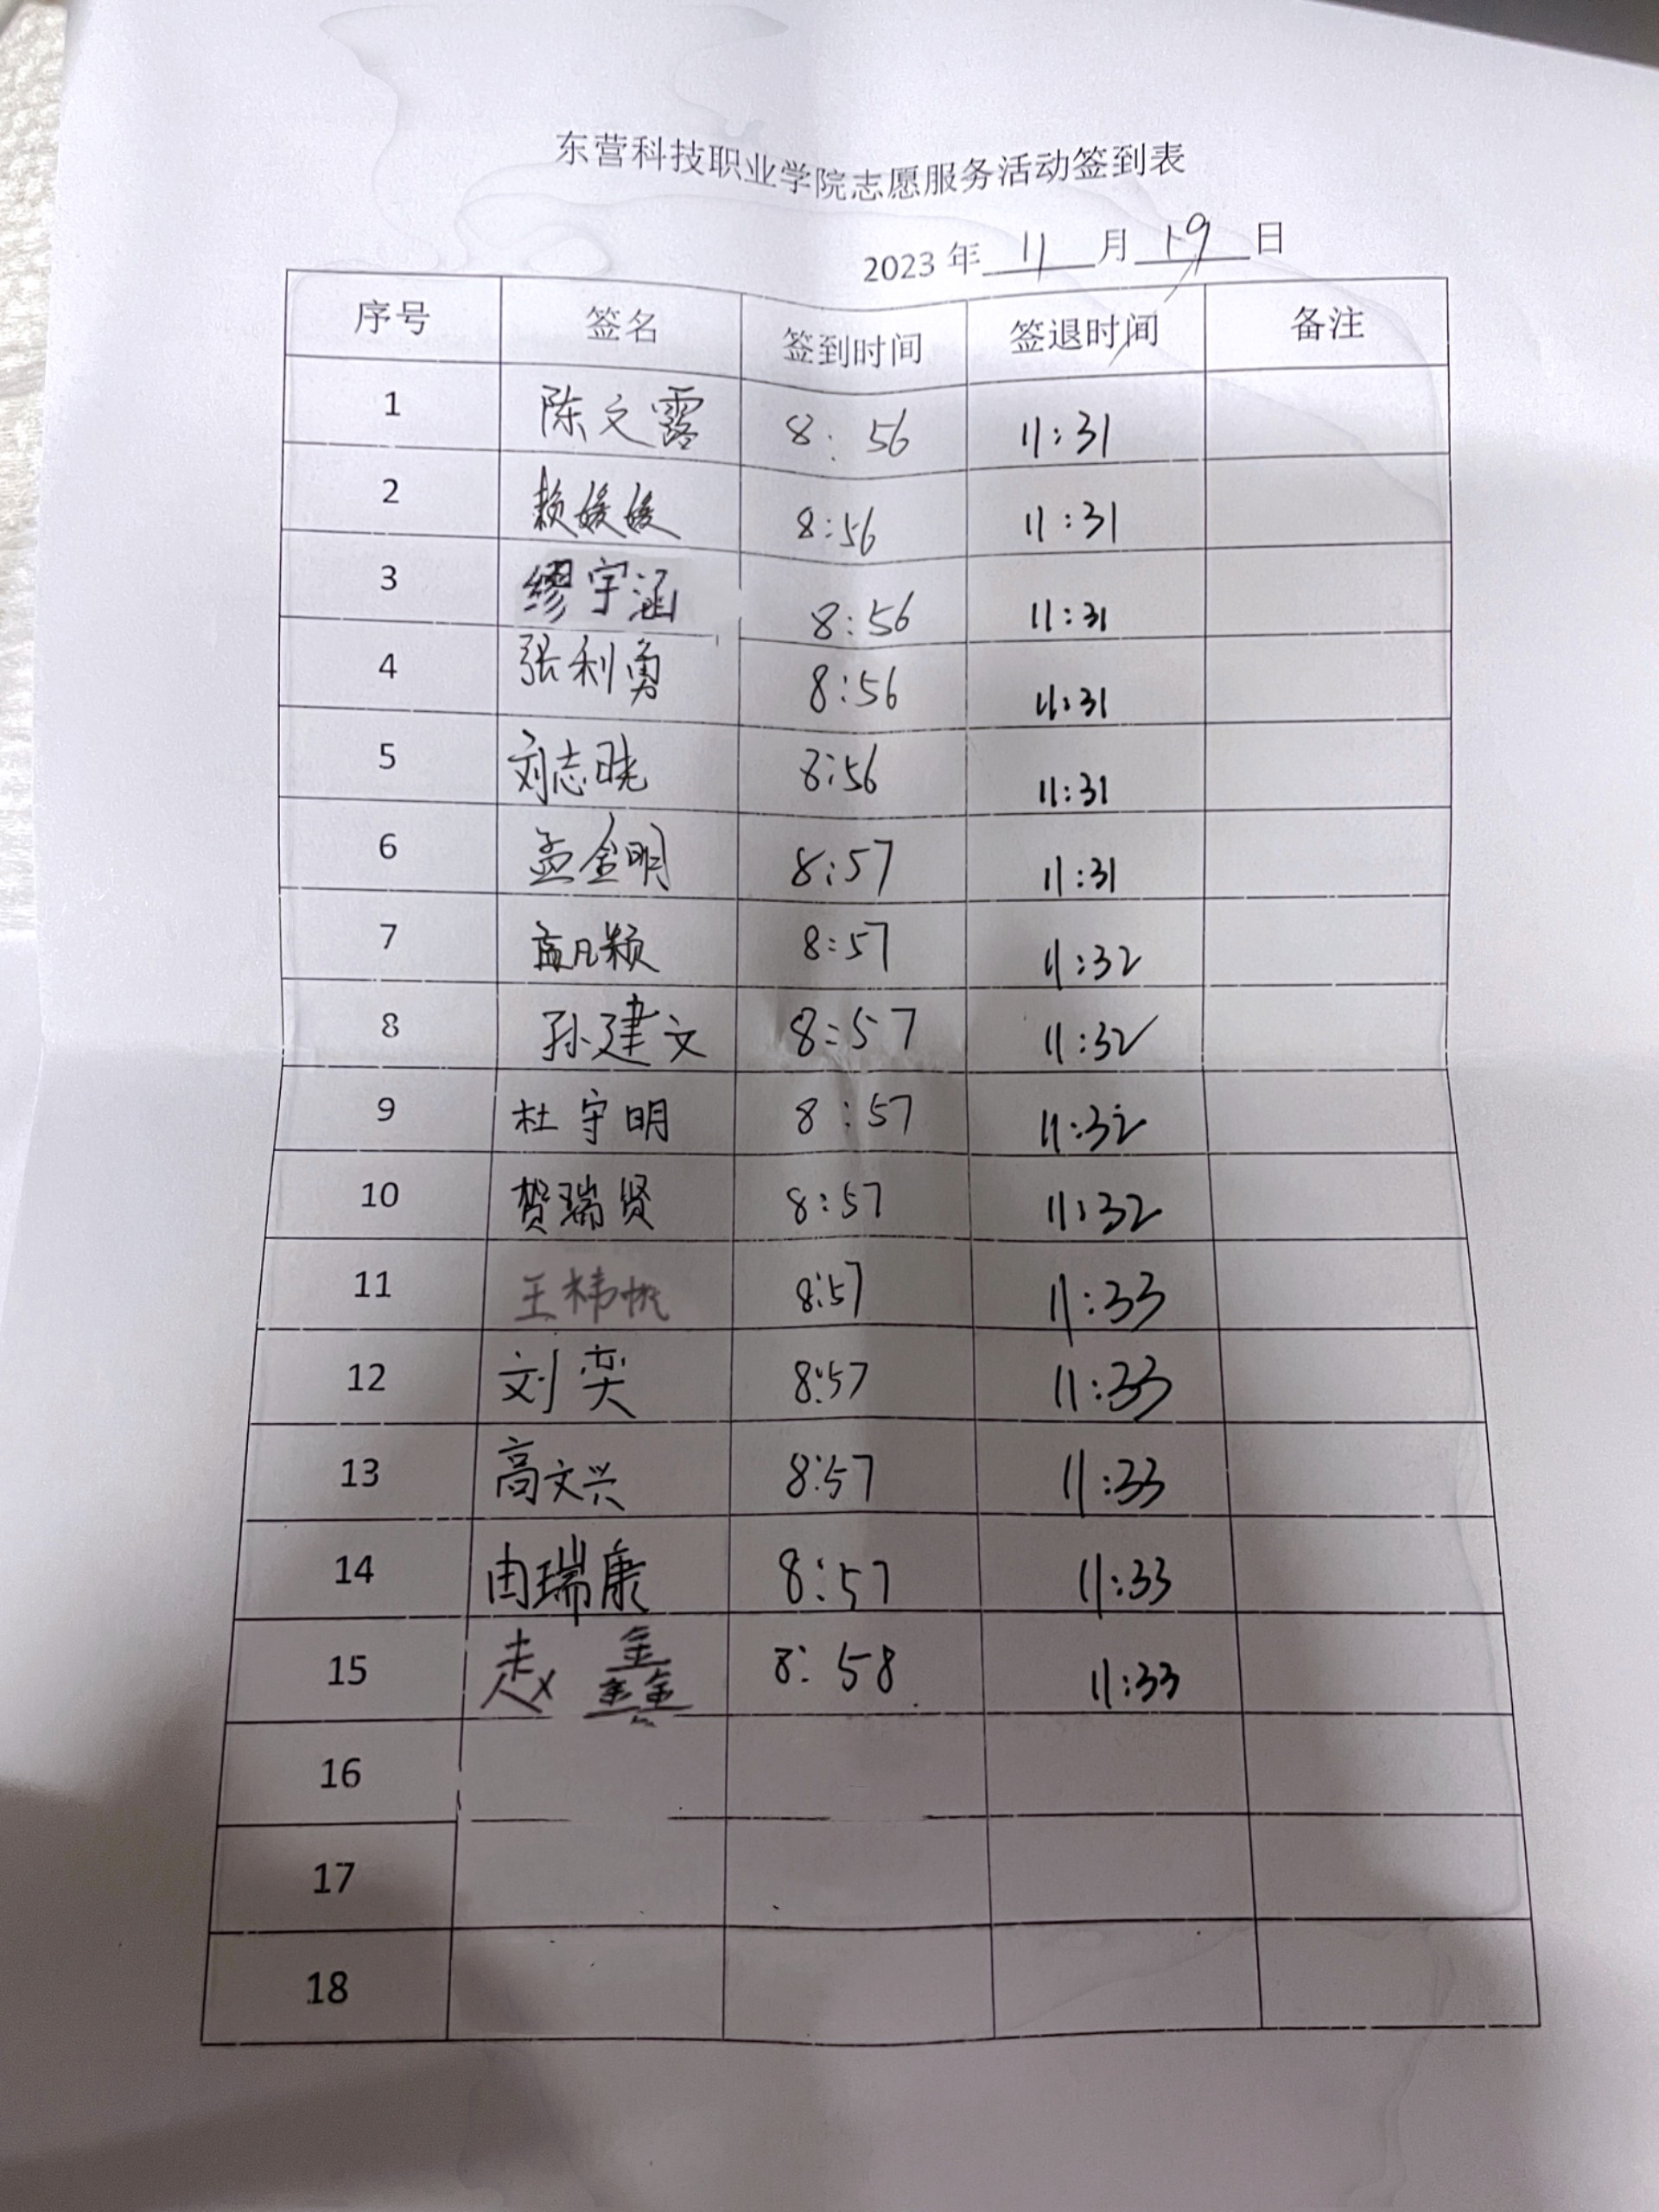 东营科技职业学院志愿服务活动签到表
2023 年 11 月 19 日
序号 签名 签到时间 签退时间 备注
1 陈文露 8:56 11:31
2 赖媛媛 8:56 11:31
3 缪宇涵 8:56 11:31
4 张利勇 8:56 11:31
5 刘志晓 8:56 11:31
6 孟金明 8:57 11:31
7 孟凡颖 8:57 11:32
8 孙建文 8:57 11:32
9 杜宇明 8:57 11:32
10 贺瑞贤 8:57 11:32
11 王祎帆 8:57 11:33
12 刘奕 8:57 11:33
13 高文兴 8:57 11:33
14 由瑞康 8:57 11:33
15 赵鑫 8:58 11:33
16
17
18